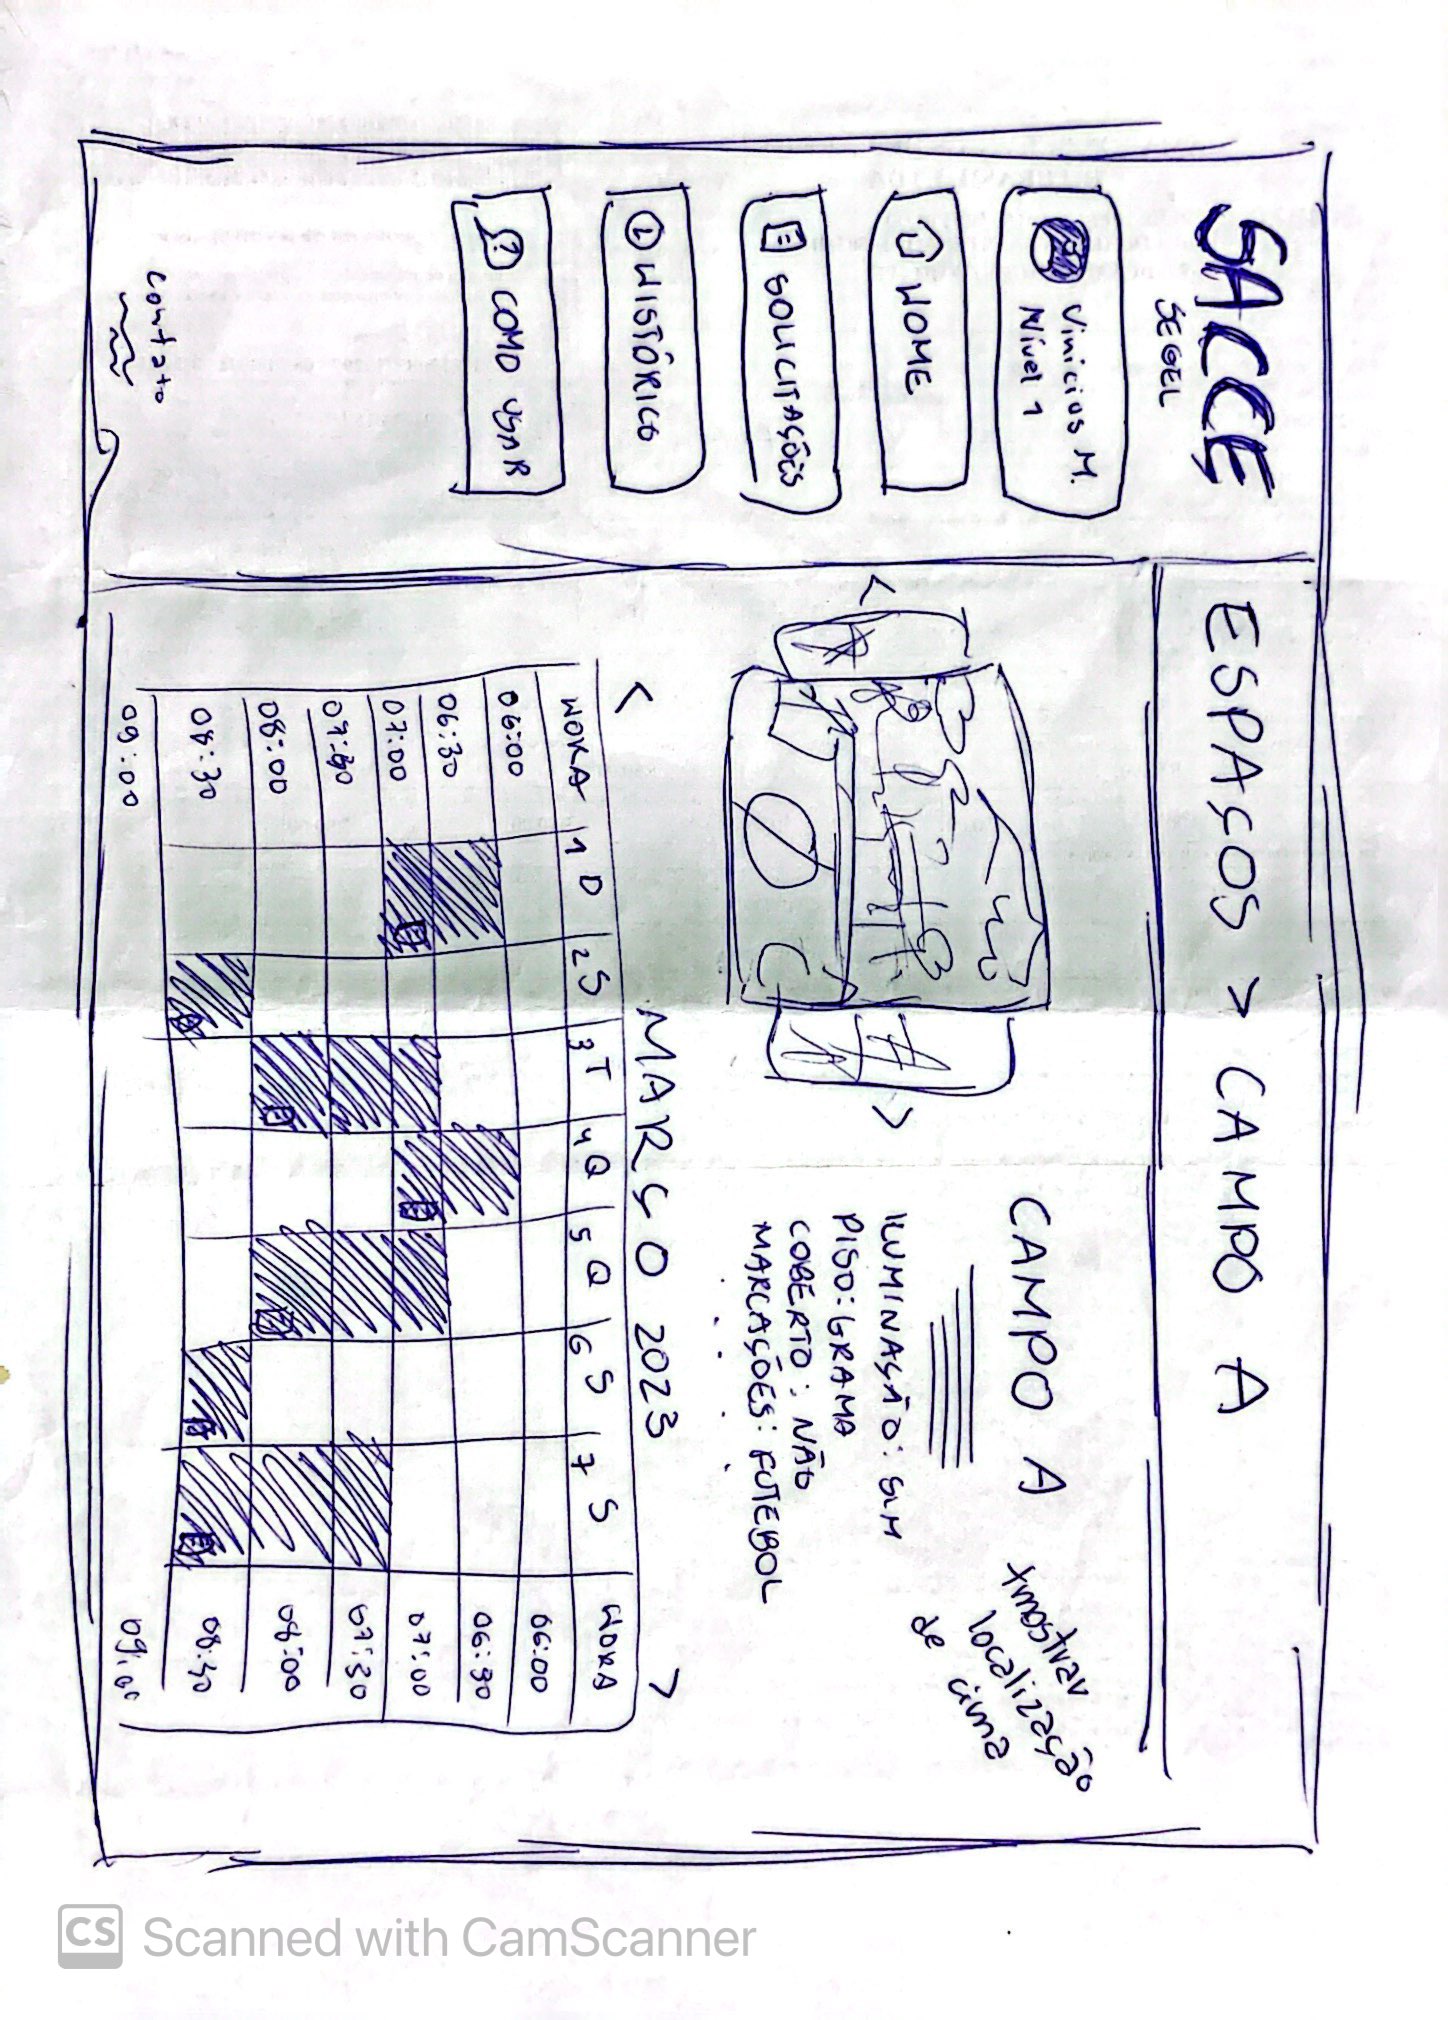 SACCE
SEGEL
Vinicios M.
Nível 1
HOME
SOLICITAÇÕES
HISTÓRICO
? COMO USAR
contato
ESPAÇOS > CAMPO A
< >
CAMPO A
+mostrar
localização
de cima
ILUMINAÇÃO: SIM
PISO: GRAMA
COBERTO: NÃO
MARCAÇÕES: FUTEBOL
. . . . .
< MARÇO 2023 >
HORA 1 D 2 S 3 T 4 Q 5 Q 6 S 7 S HORA
06:00 06:00
06:30 06:30
07:00 07:00
07:30 07:30
08:00 08:00
08:30 08:30
09:00 09:00
CS Scanned with CamScanner